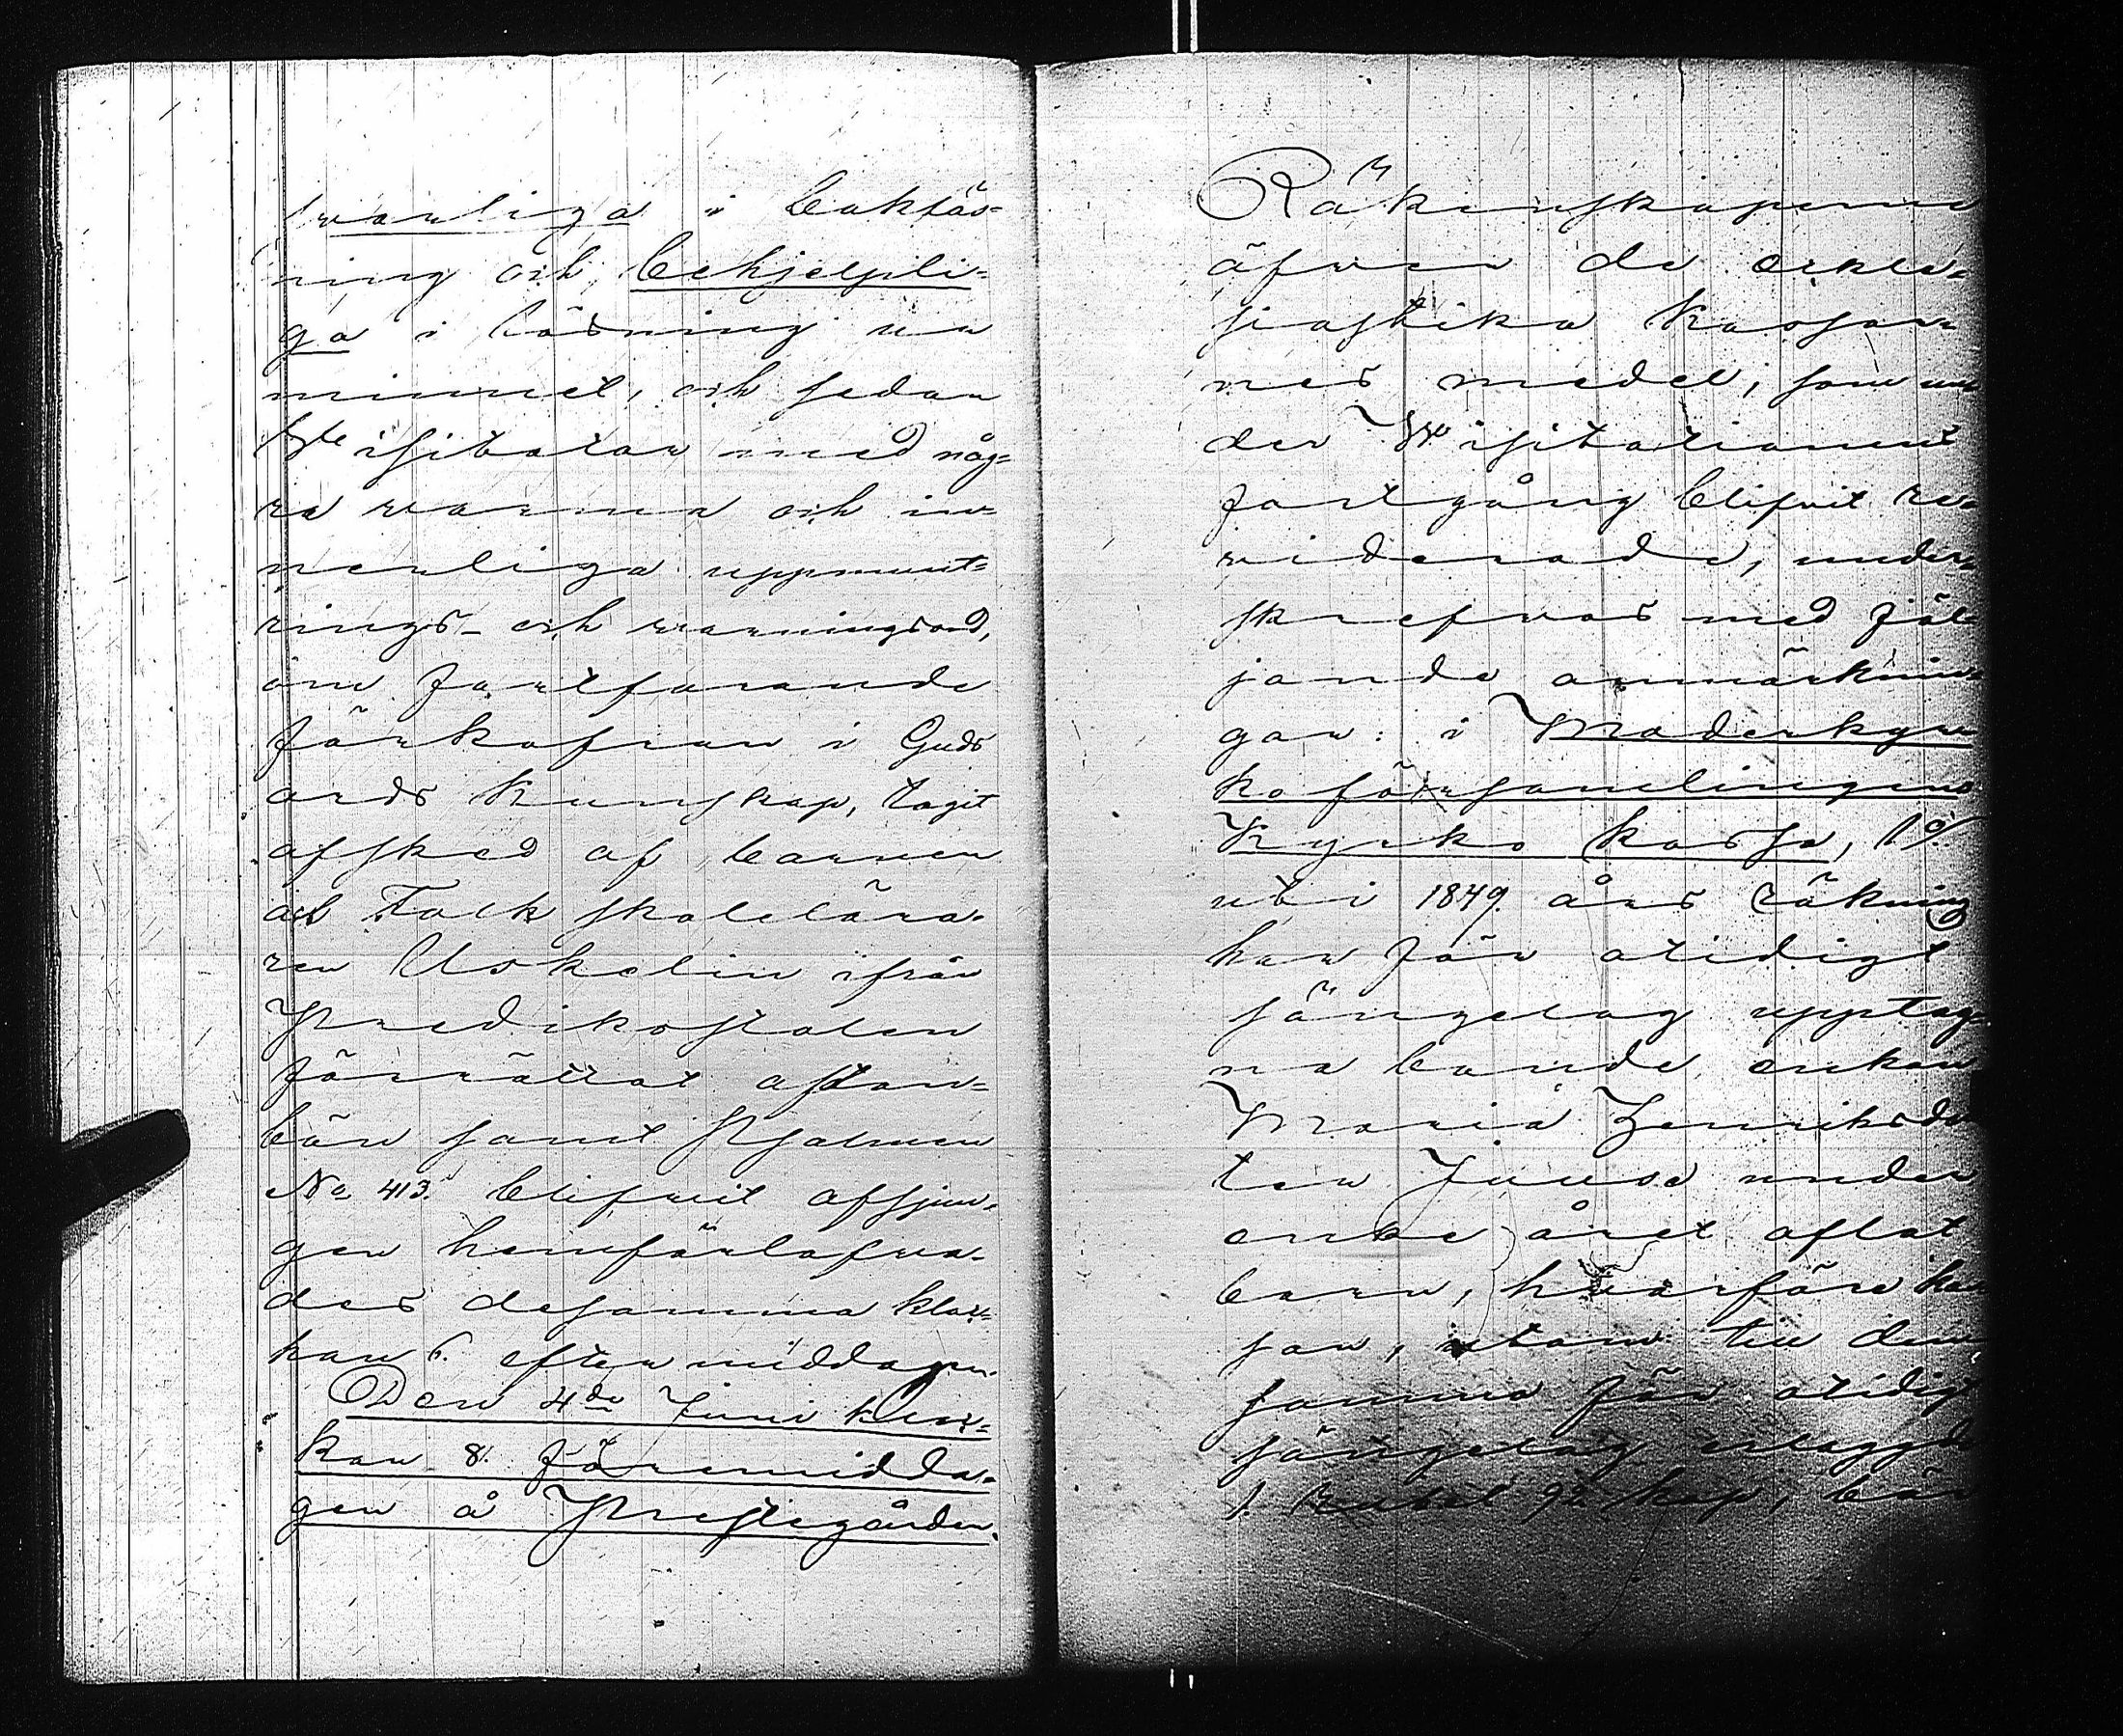 swarliga i bokläs-
ning och behjelpli-
ga i läsning ur
minnet, och sedan
Visitator med någ-
ra varma och in-
nerliga uppmunt-
rings- och varningsord,
om fortfarande
förkofran i Guds
ords kunskap, tagit
afsked af barnen
och Folkskolelära-
ren Uskelin ifrån
Predikostolen
förrättat afton-
bön samt Psalmen
No 413. blifvit afsjun-
gen hemförlofva-
des desamma kloc-
kan 6. eftermiddagen.
Den 4de Juni kloc-
kan 8. förmidda-
gen å Prestegården.
Räkenskaperne
äfven de eckle-
siastika Kassor-
nes medel, som un-
der Visitationens
fortgång blifvit re-
viderade, under-
skrefvos med föl-
jande anmärknin-
gar: i Moderkyr-
ko församlingens
Kyrko kassa, 1o/
uti 1849 års räkning
har för otidigt
sängelag upptag-
na bonde enkan
Maria Henriksdot-
ter Juuse under
enke året aflat
barn, hvarföre kas-
san, utom till den
samma för otidigt
sängelag erlaggde
1. Rubel 92 kop, bör